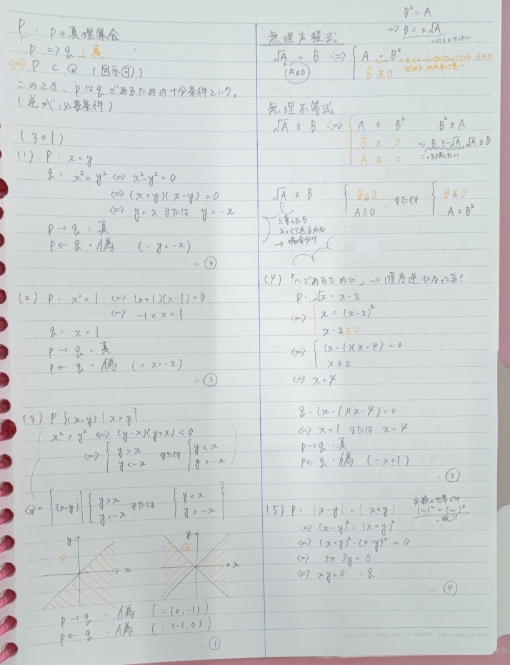 P : pの真理集合
p ⇒ q : 真
⇔ P ⊂ Q (図示)
このとき、pはqであるための十分条件という。
(逆が必要条件)
(301)
(1) p : x = y
q : x² = y² ⇔ x² - y² = 0
⇔ (x+y)(x-y) = 0
⇔ y = x または y = -x
p → q : 真
p ← q : 偽 (∵ y = -x)
(2) p : x² < 1 ⇔ (x+1)(x-1) < 0
⇔ -1 < x < 1
q : x < 1
p → q : 真
p ← q : 偽 (∵ x = -2)
(3) P {(x,y) | x > y}
x² > y² ⇔ (y-x)(y+x) < 0
⇔ { y > x
y < -x または { y < x
y > -x
Q = {(x,y) | { y > x
y < -x または { y < x
y > -x
y P x
y Q x
p → q : 偽 (∵ (0, -1))
p ← q : 偽 (∵ (-1, 0))
∴ ①
B² = A
⇒ B = ±√A
無理方程式
√A = B ⇔ { A = B²
(A≧0) B ≧ 0
無理不等式
√A ≦ B ⇔ { A ≦ B² B² ≧ A
B ≧ 0
A ≧ 0
√A ≧ B { B ≦ 0
A ≧ 0 または { B ≧ 0
A ≧ B²
→ 場合分け
(4) 「～であるために」→ 順序逆になってる!
p : √x = x-2
⇔ { x = (x-2)²
x-2 ≧ 0
⇔ { (x-1)(x-4) = 0
x ≧ 2
⇔ x = 4
q : (x-1)(x-4) = 0
⇔ x = 1 または x = 4
p → q : 真
p ← q : 偽
(5) p : |x-y| = |x+y|
⇔ (x-y)² = (x+y)²
⇔ (x+y)² - (x-y)² = 0
⇔ 2x·2y = 0
⇔ xy = 0 : q
∴ ④